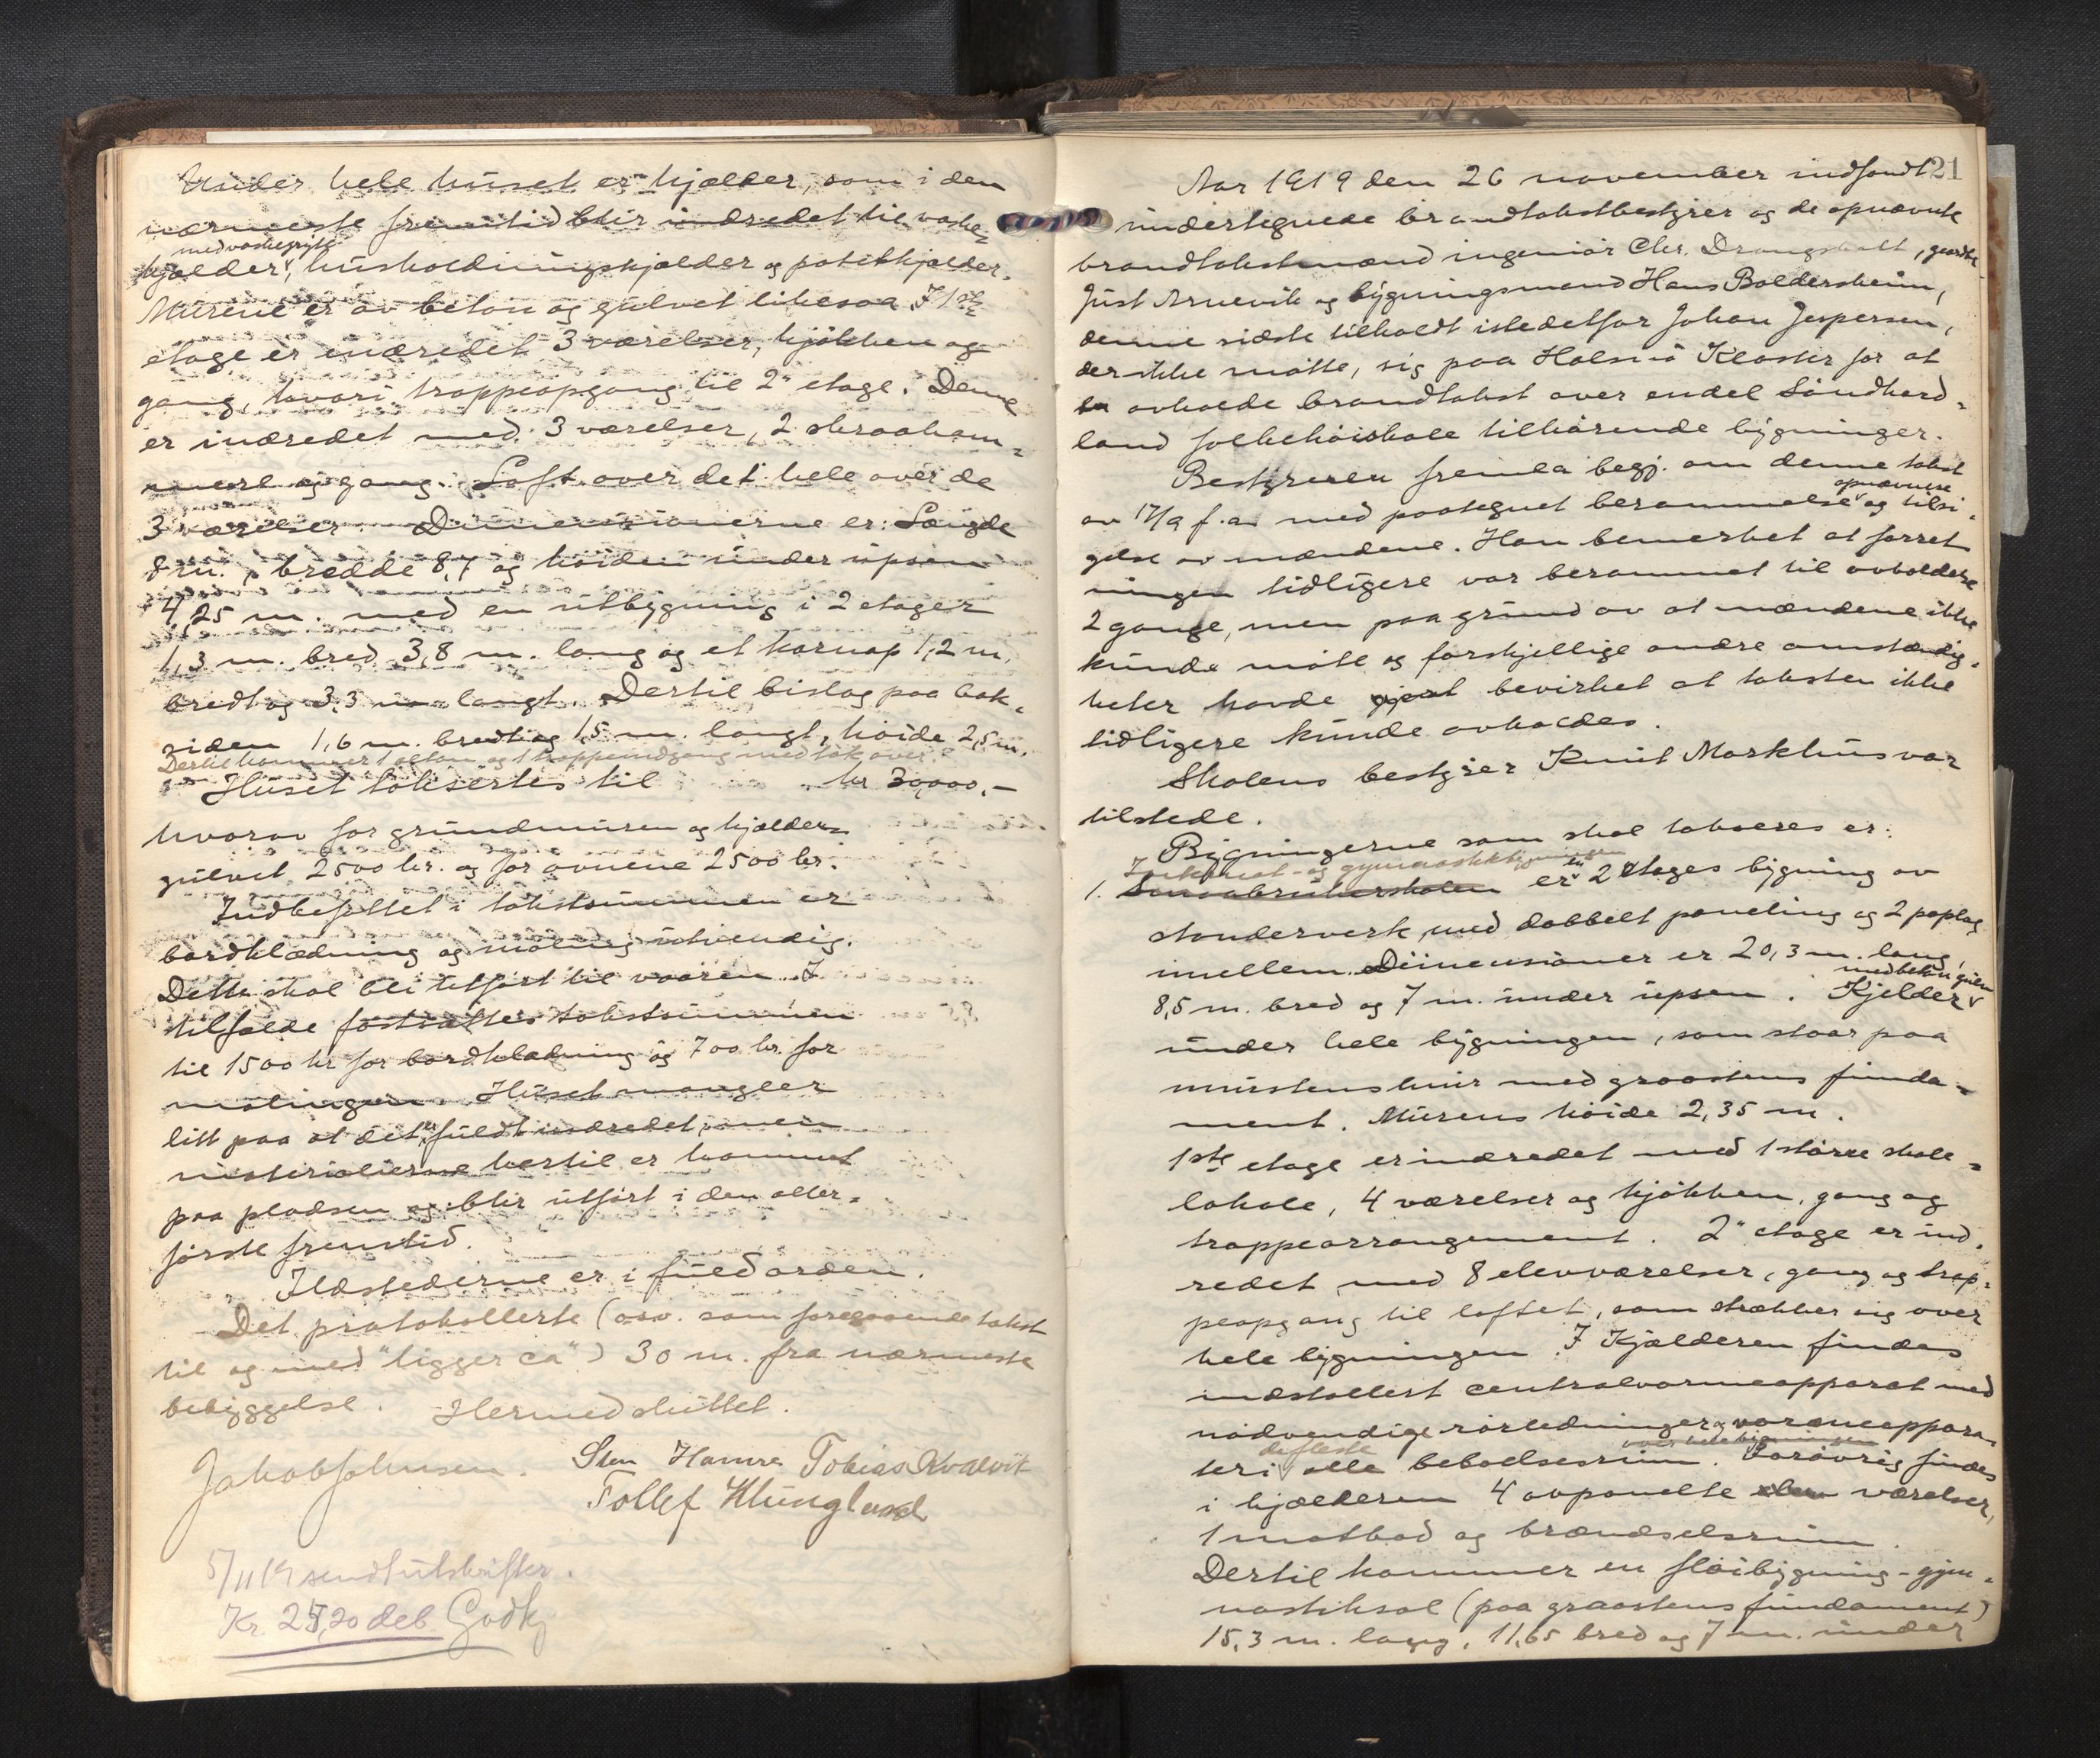 Under hele huset er kjælder, som i den
nærmeste fremtid blir indredet til vaske-
med vaskegryte
kjælder, husholdningskjælder og potetkjælder.
Murene er av beton og gulvet likesaa. I 1ste
etage er indredet 3 værelser, kjøkken og
gang, hvori trappeopgang til 2den etage. Denne
er indredet med 3 værelser, 2 skraakam-
mere og gang. Loft over det hele over de
3 værelser. Dimensionerne er: Længde
8 m., bredde 8,7 og høiden under upsen
4,25 m. med en utbygning i 2 etager
1,3 m. bred 3,8 m. lang og et karnap 1,2 m.
bredt og 3,3 m. langt. Dertil bislag paa bak-
siden 1,6 m. bredt og 1,5 m. langt, høide 2,5 m.
Dertil kommer 1 altan og 1 trappeindgang med tak over.
Huset takseres til kr 30,000,-
hvorav for grundmuren og kjælder-
gulvet 2500 kr. og for ovnene 2500 kr.
Indbefattet i takstsummen er
bordklædning og maling utvendig.
Dette skal bli utført til vaaren. I
tilfælde fastsættes takstsummen
til 1500 kr for bordklædning og 700 kr. for
malingen. Huset mangler
litt paa at det er fuldt indredet, men
materialierne hertil er kommet
paa pladsen og blir utført i den aller-
første fremtid.
Ildstederne er i fuld orden.
Det protokollerte (osv. som foregaaende takst
til og med "ligger ca") 30 m. fra nærmeste
bebyggelse. Hermed sluttet.
Jakob Johnsen. Sten Hamre Tobias Kvalvik
Tollef Klungland
5/11 19 sendt utskrifter.
Kr. 25,20 deb. Godkj
21
Aar 1919 den 26 november indfandt
undertegnede brandtakstbestyrer og de opnævnte
brandtakstmænd ingeniør Chr. Drangsholt, gaardbr.
Just Arnevik og bygningsmand Hans Boldersheim,
denne sidste tilkaldt istedetfor Johan Jespersen,
der ikke møtte, sig paa Halsnø Kloster for at
avholde brandtakst over endel Søndhord-
land folkehøiskole tilhørende bygninger.
Bestyreren fremla begj. om denne takst
opnævnelse
av 17/9 f.a. med paategnet berammelse og tilsi-
gelse av mændene. Han bemerket at forret-
ningen tidligere var berammet til avholdelse
2 gange, men paa grund av at mændene ikke
kunde møte og forskjellige andre omstændig-
heter havde bevirket at taksten ikke
tidligere kunde avholdes.
Skolens bestyrer Knut Markhus var
tilstede.
Bygningerne som skal takseres er:
Internat- og gymnastikbygningen
1. Smaabrukerskolen er en 2 etages bygning av
stenderverk med dobbelt paneling og 2 paplag
imellem. Dimensioner er 20,3 m. lang,
med beton gulv
8,5 m. bred og 7 m. under upsen. Kjelder
under hele bygningen, som staar paa
murstensmur med graastens funda-
ment. Murens høide 2,35 m.
1ste etage er indredet med 1 større skole-
lokale, 4 værelser og kjøkken, gang og
trappearrangement. 2den etage er ind-
redet med 8 elevværelser, gang og trap-
peopgang til loftet, som strækker sig over
hele bygningen. I Kjælderen findes
indstallert centralvarmeapparat med
nødvendige rørledninger og varmeappara-
de fleste over hele bygningen
ter i alle beboelsesrum. Forøvrig findes
i kjælderen 4 avpanelte værelser,
1 matbod og brændselsrum.
Dertil kommer en fløibygning - gym-
nastiksal (paa graastens fundament)
15,3 m. lang, 11,65 bred og 7 m. under